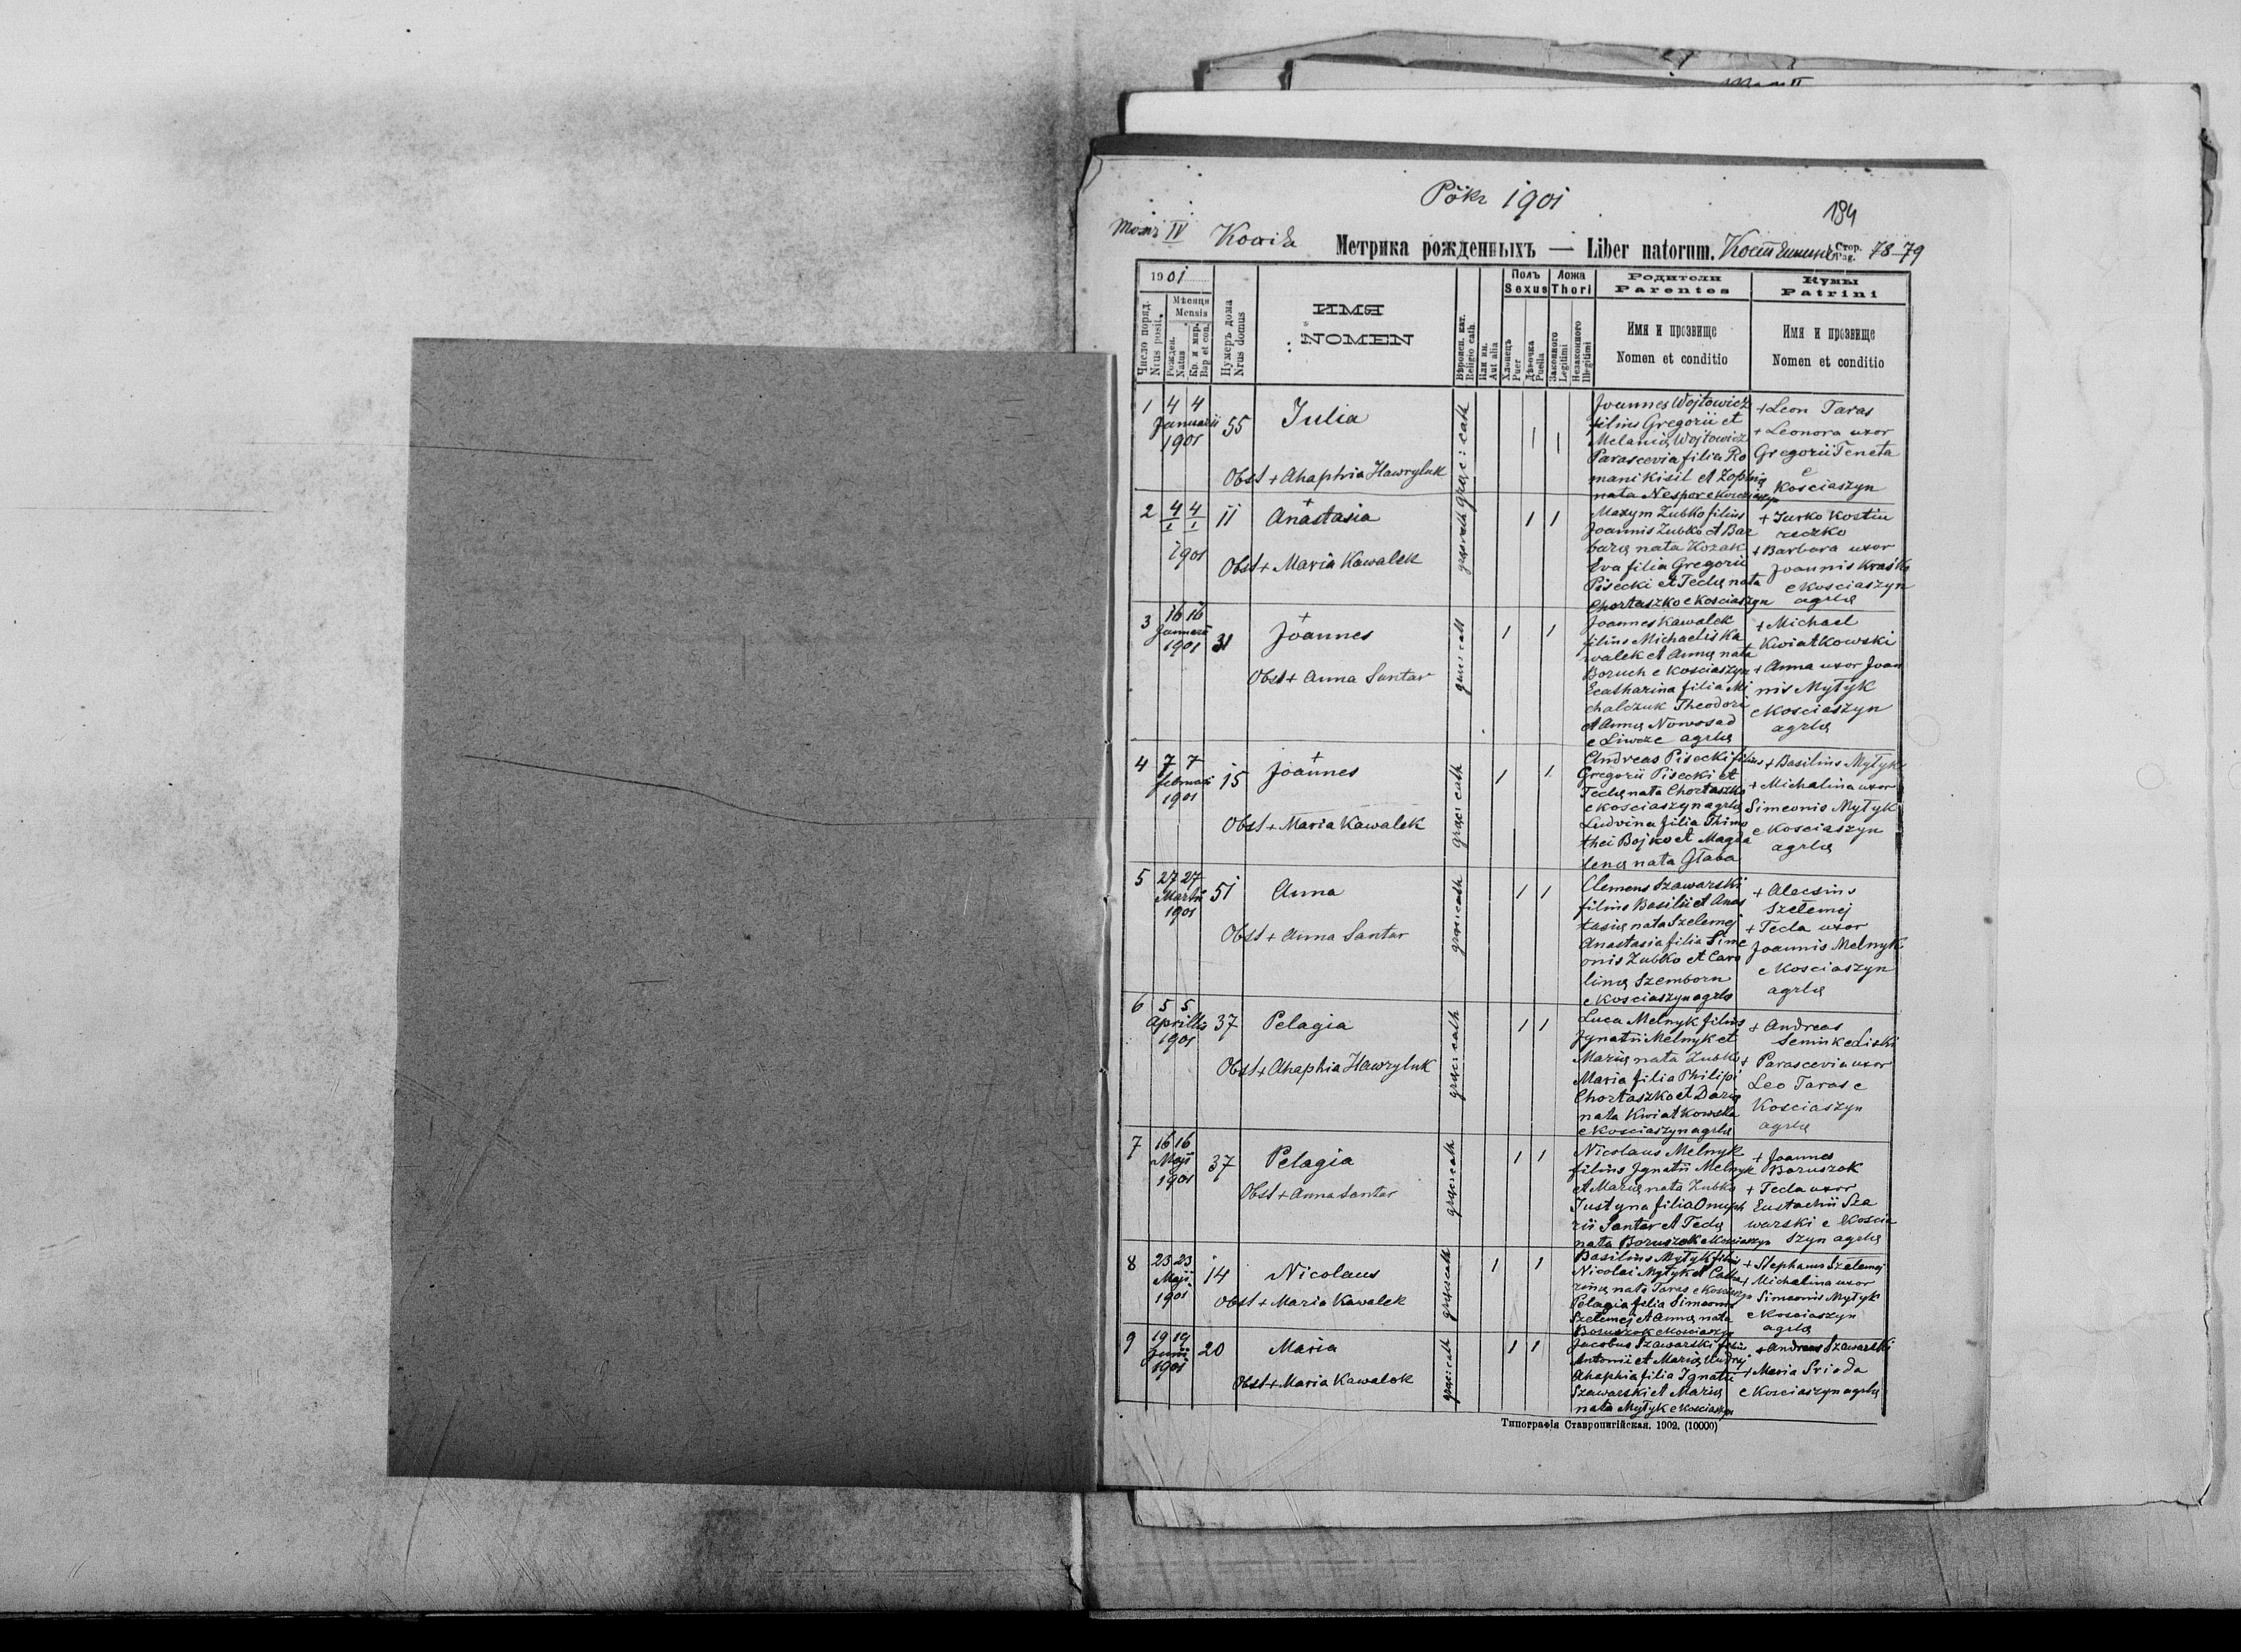 Рôкъ 1901
184
Томъ IV Копія Метрика рожденныхъ — Liber natorum. Стор. Pag. 78-79
1901
Число поряд. Nrus posit.
Мѣсяця Mensis
Рожден. Natus
Кр. и мир. Bap et con.
Нумеръ дома Nrus domus
ИМЯ
NOMEN
Вѣроисп. кат. Religio cath.
Или ин. Aut alia
Полъ Sexus
Хлопець Puer
Дѣвочка Puella
Ложа Thori
Законного Legitimi
Незаконного Illegitimi
Родители
Parentes
Имя и прозвище
Nomen et conditio
Кумы
Patrini
Имя и прозвище
Nomen et conditio
1 4 4 Januarii 1901 55 Julia
Obst + Ahaphia Hawryluk
graec: cath
Joannes Wojtowicz
filius Gregorii et
Melanię Wojtowicz
Parascevia filia Ro
mani Kisil et Zophię
nata Nespor e Kosciaszyn
+ Leon Taras
+ Leonora uxor
Gregorii Teneta
e
Kosciaszyn
2 4/I 4/I 1901 11 + Anastasia
Obst + Maria Kawalek
Maxym Zubko filius
Joannis Zubko et Bar
barę nata Kozak
Eva filia Gregorii
Pisecki et Teclę nata
Chortaszko e Kosciaszyn
+ Jurko Kostiu
reczko
+ Barbara uxor
Joannis Krasko
e Kosciaszyn
agrlę
3 16 16 Januarii 1901 31 + Joannes
Obst + Anna Santar
Joannes Kawalek
filius Michaelis Ka
walek et Annę nata
Boruch e Kosciaszyn
Ecatharina filia Mi
chalczuk Theodori
et Annę Nowosad
e Liwcze agrlę
+ Michael
Kwiatkowski
+ Anna uxor Joan
nis Mytyk
e Kosciaszyn
agrlę
4 7 7 februari 1901 15 + Joannes
Obst + Maria Kawalek
graec: cath
Andreas Pisecki filius
Gregorii Pisecki et
Teclę nata Chortaszko
e Kosciaszyn agrlę
Ludvina filia Thimo
thei Bojko et Magda
lenę nata Głaba
+ Basilius Mytyk
+ Michalina uxor
Simeonis Mytyk
e Kosciaszyn
agrlę
5 27 27 Martii 1901 51 Anna
Obst + Anna Santar
graec: cath
Clemens Szawarski
filius Basilii et Anas
tasię nata Szelemej
Anastasia filia Sime
onis Zubko et Caro
linę Szemborn
e Kosciaszyn agrlę
+ Alecsius
Szelemej
+ Tecla uxor
Joannis Melnyk
e Kosciaszyn
agrlę
6 5 5 Aprillis 1901 37 Pelagia
Obst + Ahaphia Hawryluk
graec: cath
Luca Melnyk filius
Jgnatii Melnyk et
Marię nata Zubko
Maria filia Philipi
Chortaszko et Darię
nata Kwiatkowska
e Kosciaszyn agrlę
+ Andreas
+ Parascevia uxor
Leo Taras e
Kosciaszyn
agrlę
7 16 16 Maji 1901 37 Pelagia
Obst + Anna Santar
graec: cath
Nicolaus Melnyk
filius Jgnatii Melnyk
et Marię nata Zubko
Justyna filia Onuph
rii Santar et Teclę
nata Boruszok e Kosciaszyn
+ Joannes
Boruszok
+ Tecla uxor
Eustachii Sza
warski e Koscia
szyn agrlę
8 23 23 Maji 1901 14 Nicolaus
Obst + Maria Kawalek
graec: cath
Basilius Mytyk filius
Nicolai Mytyk et Catha
rinę nata Taras e Kosciaszyn
Pelagia filia Simeonis
Szelemej et Annę nata
Boruszok e Kosciaszyn
+ Stephanus Szelemej
+ Michalina uxor
Simeonis Mytyk
e Kosciaszyn
agrlę
9 19 19 Junii 1901 20 Maria
Obst + Maria Kawalek
graec: cath
Jacobus Szawarski filius
Antonii et Marię
Ahaphia filia Ignatii
Szawarski et Marię
nata Mytyk e Kosciaszyn
+ Andreas Szawarski
+ Maria Srioda
e Kosciaszyn agrlę
Типографія Ставропигійская. 1902. (10000)